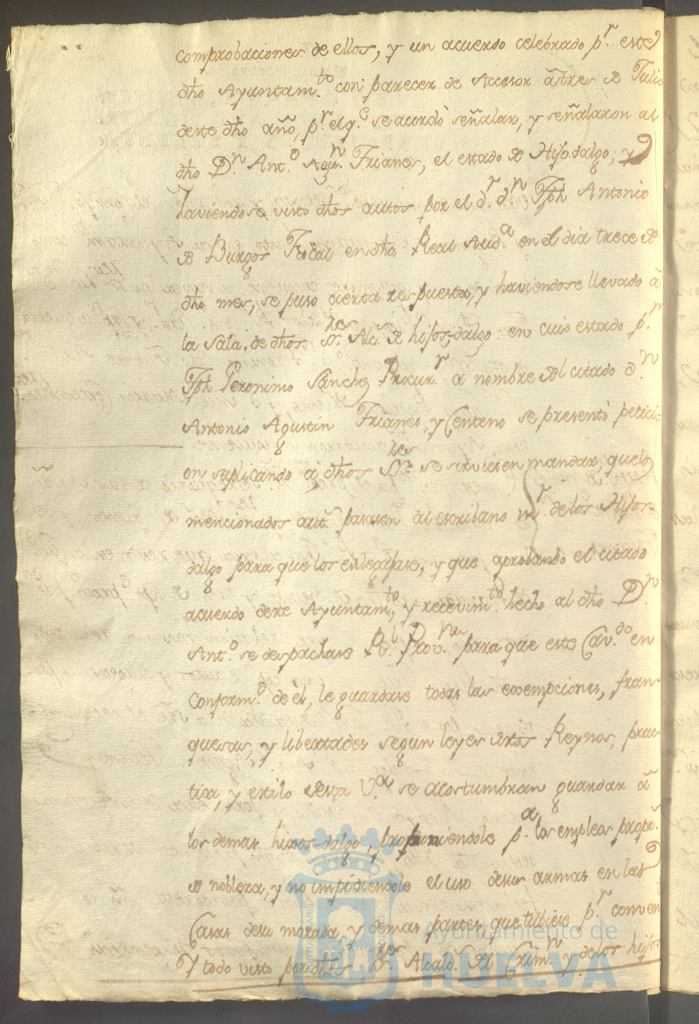 comprobaciones de ellos, y un acuerdo celebrado pr. este
dho Ayuntam.to con parecer de Accesor a tres de Julio
deste dho año, pr. el q.e se acordó señalar, y señalaron al
dho Dn. Ant.o Agu.n Frianes, el estado de Hijodalgo; y
haviendose visto dhos autos por el dr. dn. Jph Antonio
de Burgos Fiscal en dha Real Aud.a en el dia trece de
dho mes, se puso cierta respuesta, y haviendose llevado à
la Sala, de dhos Sres. Alc.s de hijos-dalgo: en cuio estado pr.
Jph Geronimo Sanchez Procur.r à nombre del citado dn.
Antonio Agustin Frianes, y Centeno se presentò petici-
on suplicando a dhos Sres. se sirviesen mandar, que los
mencionados aut.s pasasen al escribano mr. de los Hijos-
dalgo para que los entregase, y que aprobando el citado
acuerdo deste Ayuntam.to, y recevim.to hecho al dho Dn.
Ant.o se despachase Rl. Prov.n para que este Cav.do en
Conform.d de èl, le guardase todas las exempciones, fran-
quesas, y libertades segun leyes destos Reynos, prac-
tica, y estilo desta V.a se acostumbran guardar à
los demas hixos-dalgo, proponiendole p.a los empleos propr.s
de nobleza, y no impidiendole el uso de sus armas en las
Casas de su morada, y demas partes, que tubiese pr. conven.te
Y todo visto por dhos Sres. Alcald.s del Crim.n y de los hijos
Ayuntamiento de
HUELVA